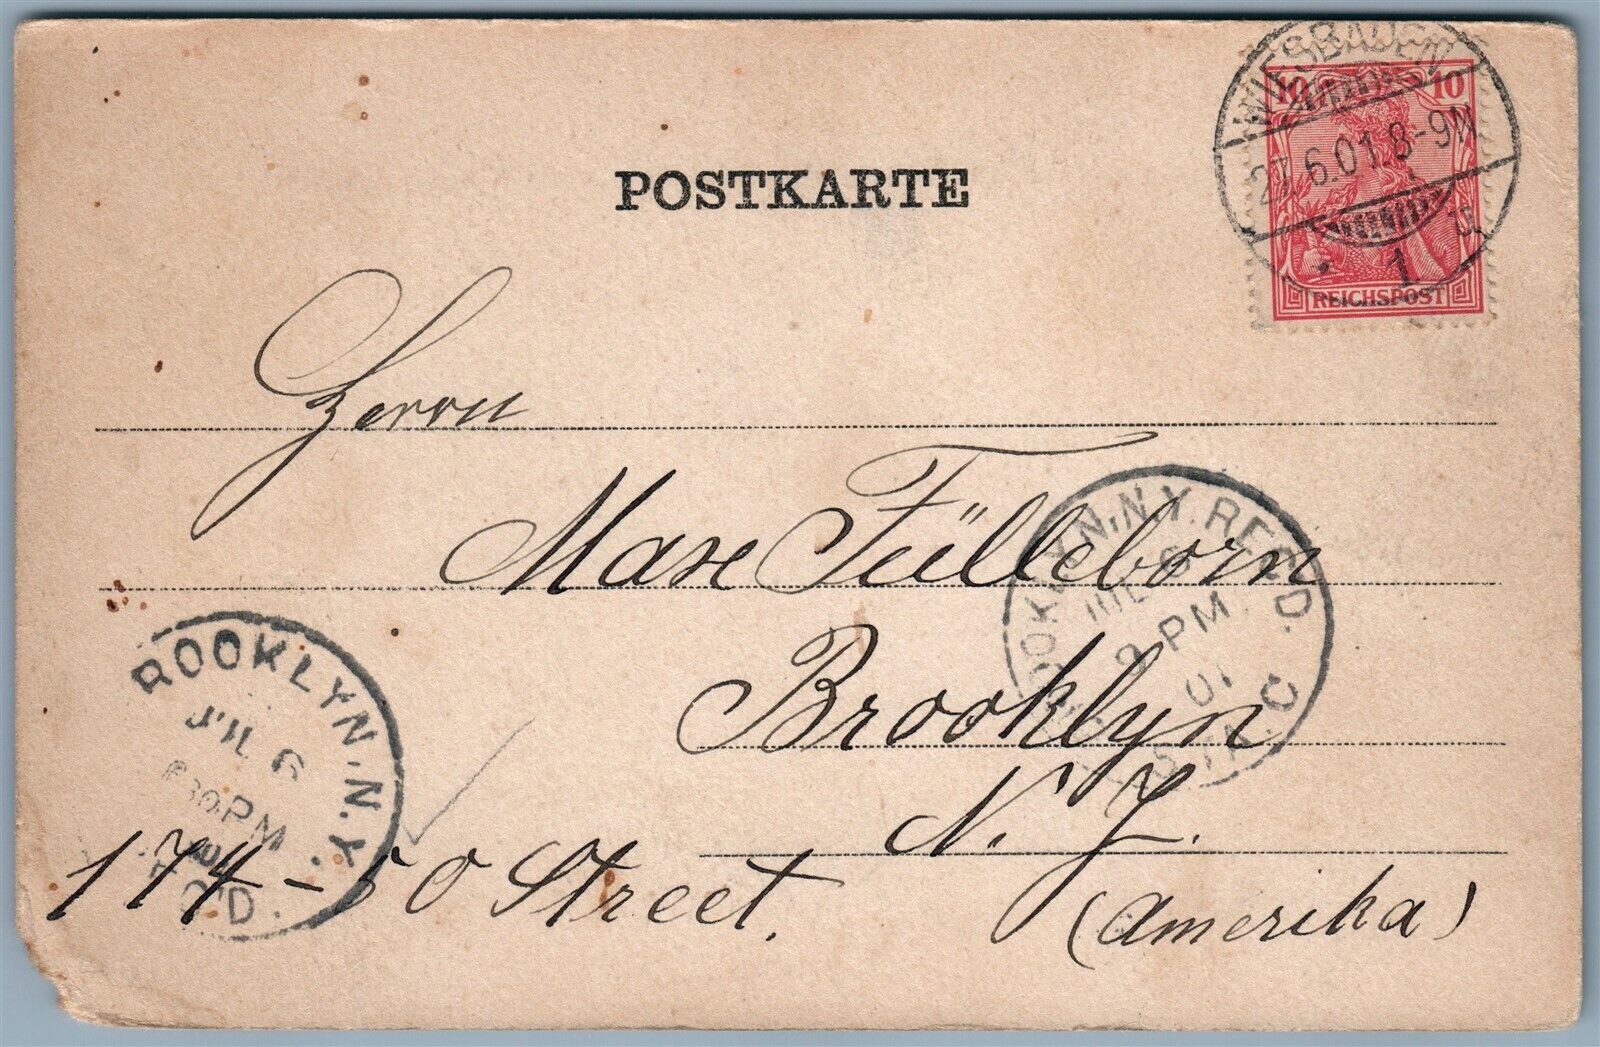 WIESBADEN
10 10
27.6.01.8-9N
1 u
REICHSPOST
POSTKARTE
Herrn
Max Fülleborn
Brooklyn
N. Y.
174-50 Street.
(Amerika)
BROOKLYN, N.Y. REC'D.
JUL 6
PM
01
C
STA.
ROOKLYN, N.Y.
JUL 6
630PM
REC'D.